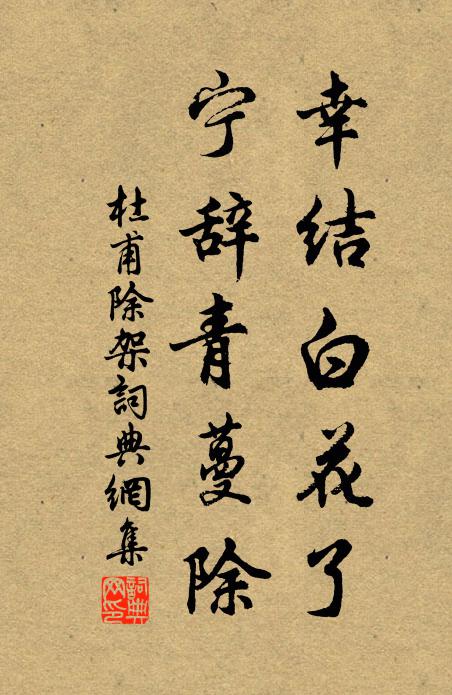 幸结白花了
宁辞青蔓除
杜甫除架詞典網集
詞典
网印